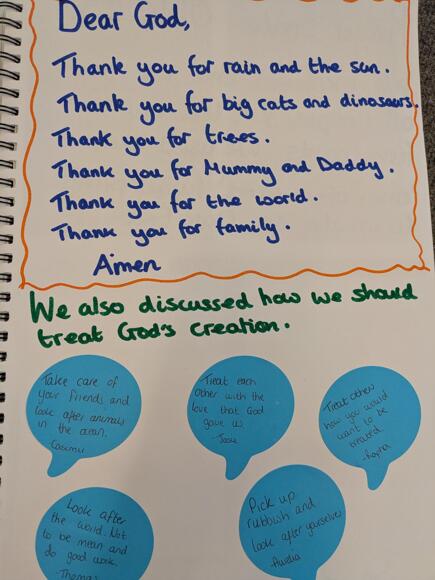 Dear God,
Thank you for rain and the sun.
Thank you for big cats and dinosaurs.
Thank you for trees.
Thank you for Mummy and Daddy.
Thank you for the world.
Thank you for family.
Amen
We also discussed how we should
treat God's creation.
Take care of
your friends and
look after animals
in the ocean.
Treat each
other with the
love that God
gave us.
Treat others
how you would
want to be
treated
Look after
the world. Not
to be mean and
do good work.
- Thomas
Pick up
rubbish and
look after yourselves